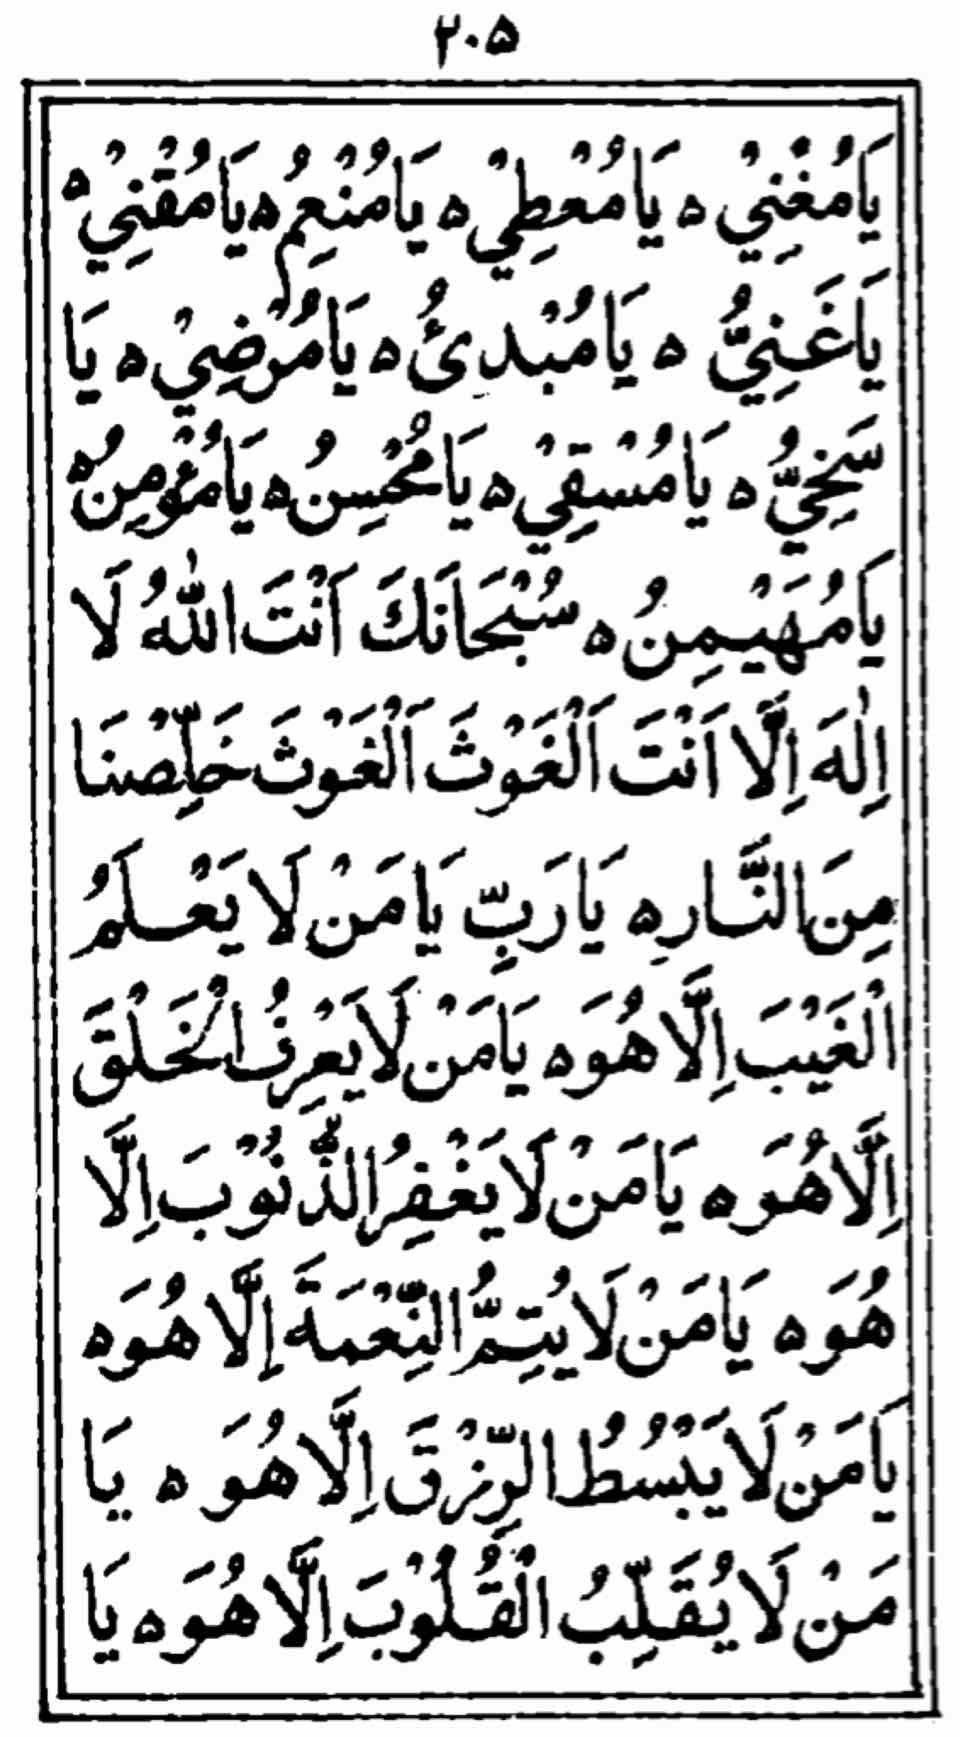 ۲۰۵
يَامُغْنِيْ ه يَا مُعْطِيْ ه يَا مُنْعِمُ ه يَا مُقْنِيْ ه
يَا غَنِيُّ ه يَا مُبْدِئُ ه يَا مُرْضِيْ ه يَا
سَخِيُّ ه يَا مُسْقِيْ ه يَا مُحْسِنُ ه يَا مُؤْمِنُ ه
يَا مُهَيْمِنُ ه سُبْحَانَكَ اَنْتَ اللّٰهُ لَا
اِلٰهَ اِلَّا اَنْتَ اَلْغَوْثَ اَلْغَوْثَ خَلِّصْنَا
مِنَ النَّارِ ه يَا رَبِّ يَا مَنْ لَا يَعْلَمُ
الْغَيْبَ اِلَّا هُوَ ه يَا مَنْ لَا يَعْرِفُ الْخَلْقَ
اِلَّا هُوَ ه يَا مَنْ لَا يَغْفِرُ الذُّنُوْبَ اِلَّا
هُوَ ه يَا مَنْ لَا يُتِمُّ النِّعْمَةَ اِلَّا هُوَ ه
يَا مَنْ لَا يَبْسُطُ الرِّزْقَ اِلَّا هُوَ ه يَا
مَنْ لَا يُقَلِّبُ الْقُلُوْبَ اِلَّا هُوَ ه يَا